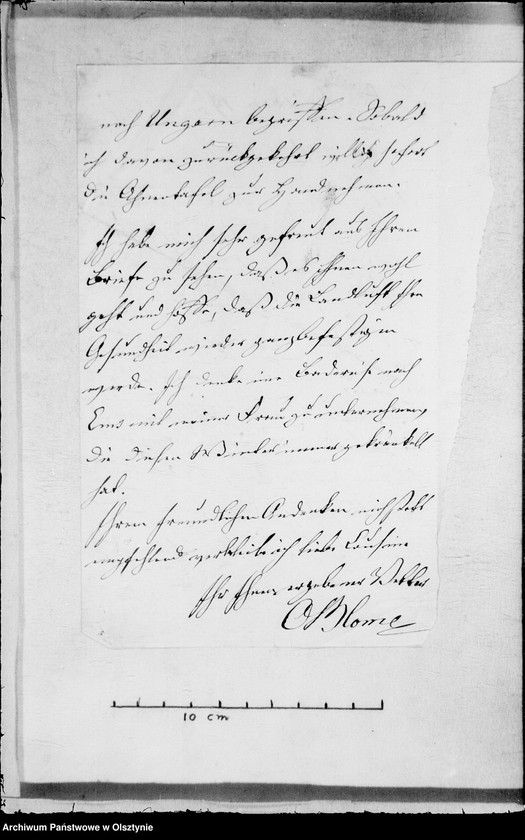 nach Ungarn begriffen. Sobald
ich davon zurückgekehrt will ich sofort
die Ahnentafel zur Hand nehmen.
Ich habe mich sehr gefreut aus Ihrem
Briefe zu sehen, daß es Ihnen wohl
geht und hoffe, daß die Landluft Ihre
Gesundheit wieder ganz befestigen
werde. Ich denke eine Badereise nach
Ems mit meiner Frau zu unternehmen,
die diesen Winter immer gekränkelt
hat.
Ihrem freundlichen Andenken mich stets
empfehlend verbleibe ich liebe Cousine
Ihr Ihnen ergebener Vetter
OBlome
10 cm
Archiwum Państwowe w Olsztynie